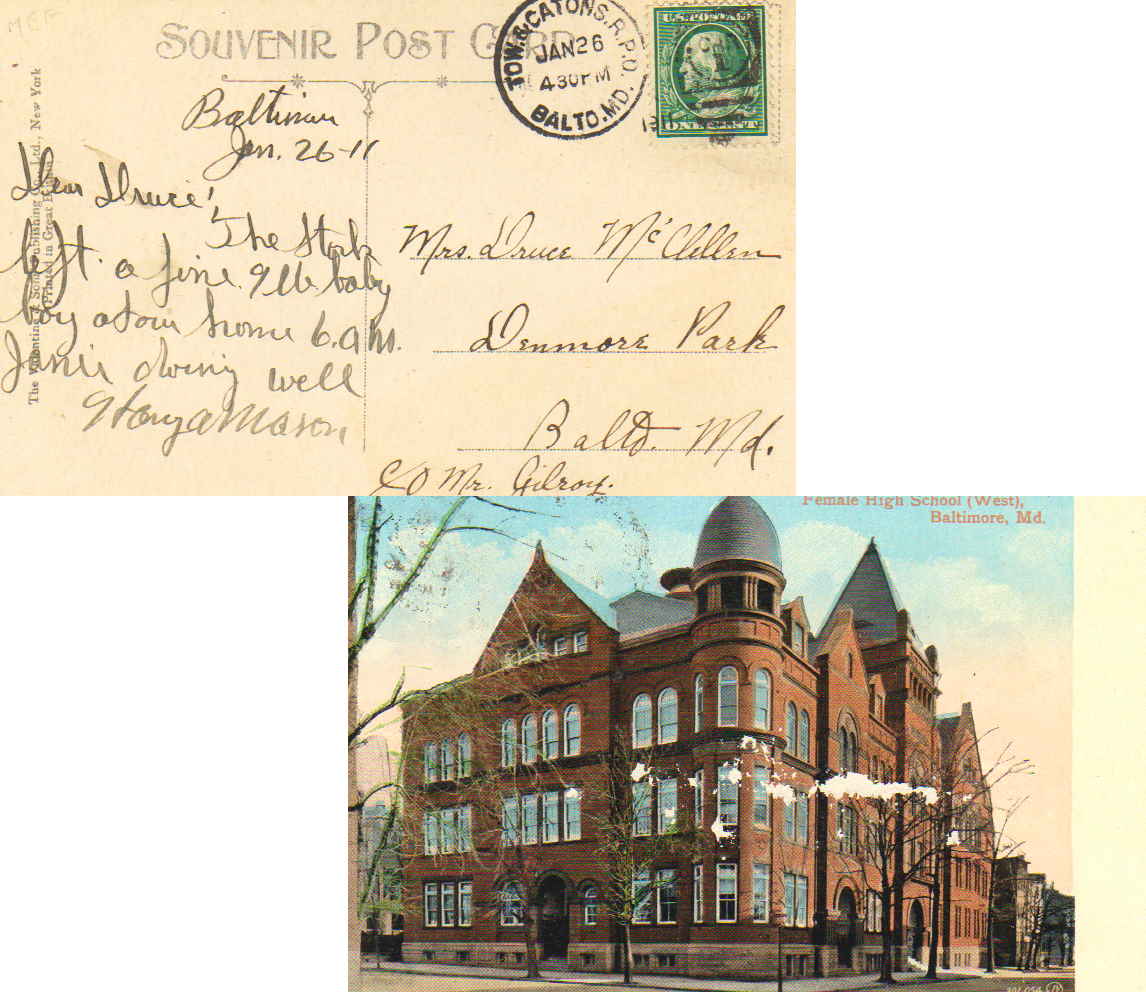 MEF
SOUVENIR POST CARD
TOW. & CATONS. R.P.O.
JAN 26
4 30 PM
BALTO. MD.
1911
The Valentine & Sons Publishing Co., Ltd., New York
Printed in Great Britain
Baltimore
Jan. 26-11
Dear Druce,
The Stork
left. a fine. 9 lb. baby
boy at our home 6. a m.
Janie doing well
Harry a Mason
Mrs. Druce McClellen
Denmore Park
Balto. Md.
c/o Mr. Gilroy.
Female High School (West),
Baltimore, Md.